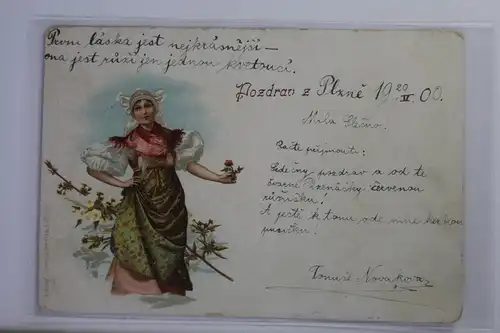 První láska jest nejkrásnější —
ona jest růží jen jednou kvetoucí.
Pozdrav z Plzně 19 20/IV 00.
Milá Slečno.
Račte přijmouti:
Srdečný pozdrav a od té
švarné Plzeňačky červenou
růžičku!
A ještě k tomu ode mne hezkou
Tomáš Novák